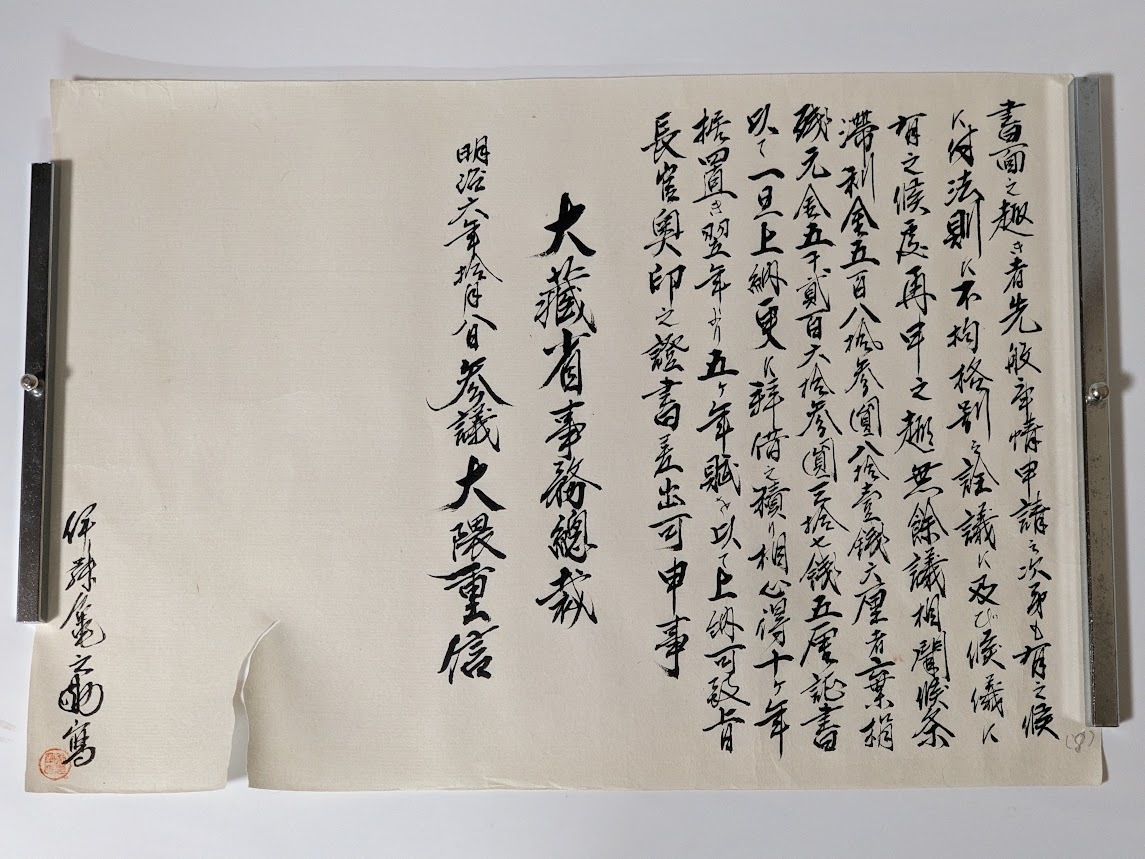 書面之趣き者先般事情申請之次第も有之候
に付法則に不拘格別之詮議に及び候儀に
有之候處再申之趣無餘議相聞候条
滞利金五百八拾参圓八拾壹錢六厘者棄捐
残元金五千貳百六拾参圓三拾七錢五厘証書
以て一旦上納更に拝借之積り相心得十ヶ年
据置き翌年より五ヶ年賦を以て上納可致旨
長官奥印之證書差出可申事
大藏省事務總裁
明治六年拾月八日参議大隈重信
伊 亀之助寫
(8)